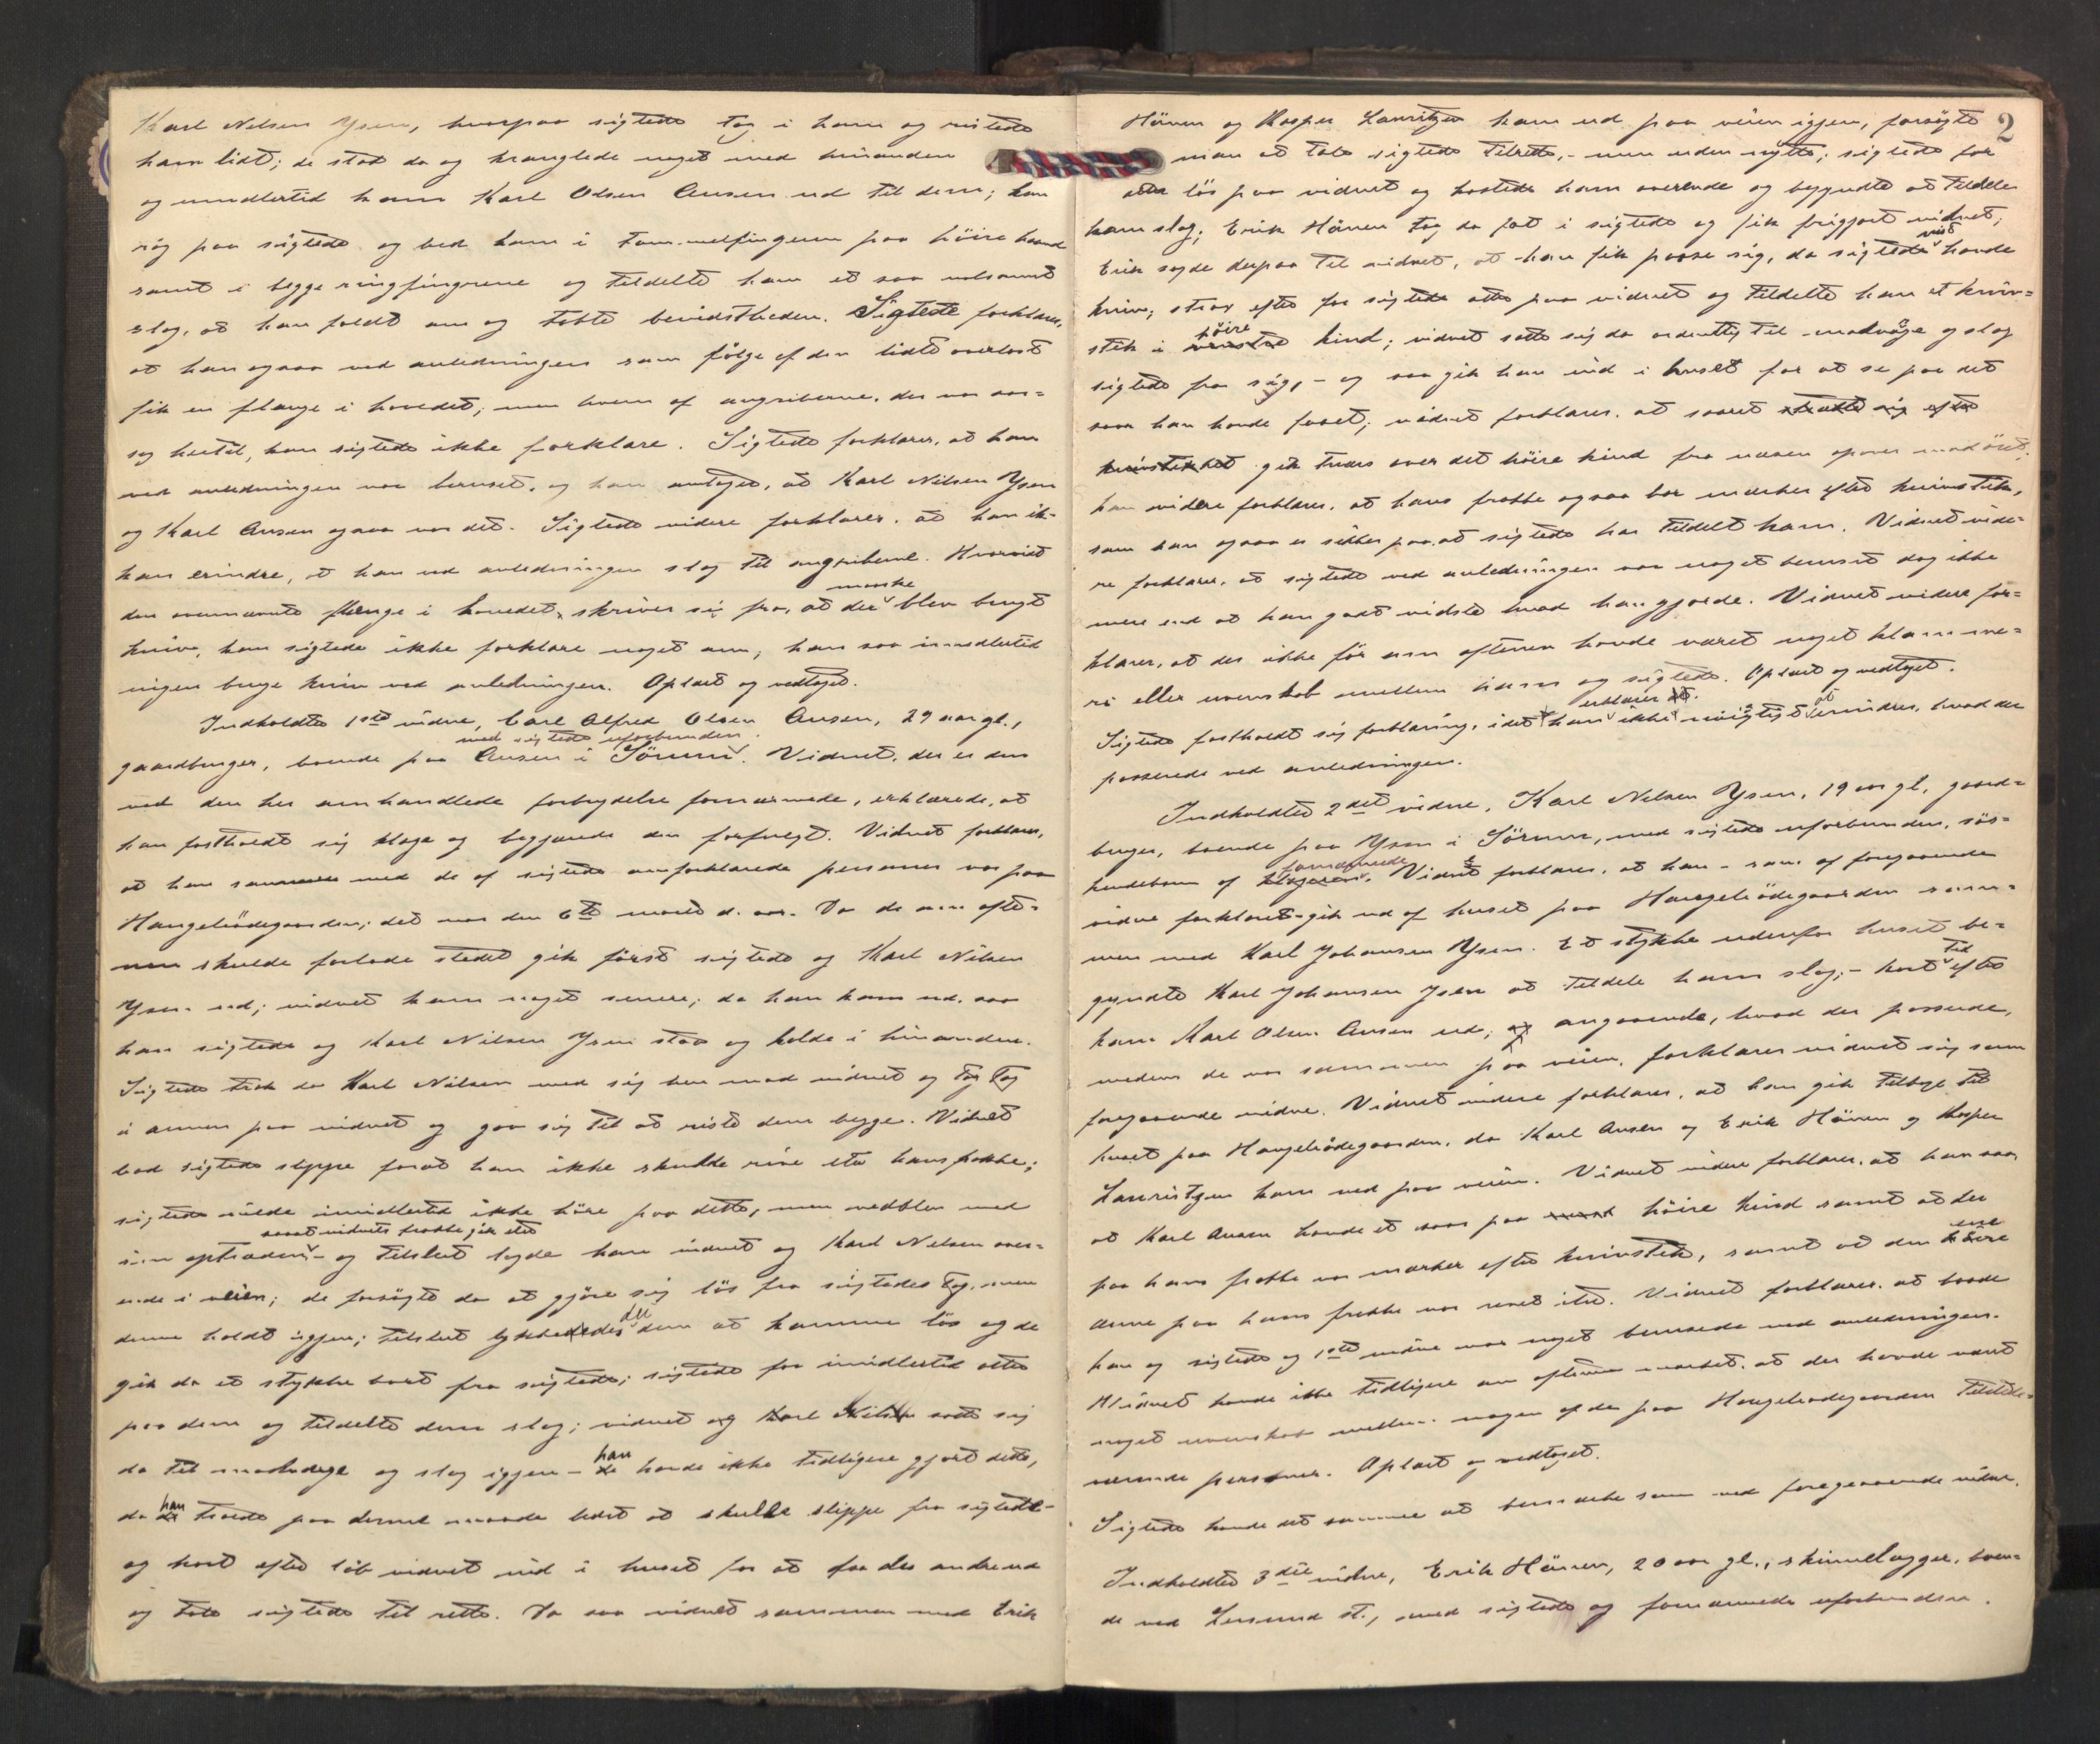 Karl Nilsen Ysen, hvorpaa sigtede tog i ham og ristede
ham lidt; de stod da og kranglede noget med hinanden
og imidlertid kom Karl Olsen Ausen ud til dem; han
røg paa sigtede og bed ham i tommelfingeren paa høire haand
samt i begge ringfingrene og tildelte ham et saa voldsomt
slag, at han faldt om og tabte bevidstheden. Sigtede forklarer,
at han ogsaa ved anledningen som følge af den lidte overlast
fik en flænge i hovedet; men hvem af angriberne, der var aar-
sag hertil, kan sigtede ikke forklare. Sigtede forklarer, at han
ved anledningen var beruset, og han antager, at Karl Nilsen Ysen
og Karl Ausen ogsaa var det. Sigtede videre forklarer, at han ik-
kan erindre, at han ved anledningen slog til angriberne. Hvorvidt
den ovennævnte flænge i hovedet, skriver sig fra, at der maaske blev brugt
kniv, kan sigtede ikke forklare noget om; han saa imidlertid
ingen bruge kniv ved anledningen. Oplæst og vedtaget.
Indkaldte 1ste vidne, Carl Alfred Olsen Ausen, 29 aar gl.,
gaardbruger, boende paa Ausen i Sörum, med sigtede uforbunden. Vidnet, der er den
ved den her omhandlede forbrydelse fornærmede, erklærede, at
han fastholdt sig klage og begjærede den forfulgt. Vidnet forklarer,
at han sammen med de af sigtede omforklarede personer var paa
Haugeliødegaarden; det var den 6te marts d. aar. Da de om afte-
nen skulde forlade stedet gik først sigtede og Karl Nilsen
Ysen ud; vidnet kom noget senere; da han kom ud, saa
han sigtede og Karl Nilsen Ysen staa og holde i hinanden.
Sigtede trak da Karl Nilsen med sig hen mod vidnet og tog tag
i armen paa vidnet og gav sig til at riste dem begge. Vidnet
bad sigtede slippe forat han ikke skulde rive itu hans frakke;
sigtede vilde imidlertid ikke høre paa dette, men vedblev med
sin optræden saaat vidnets frakke gik itu - og tilslut lagde han vidnet og Karl Nilsen over-
ende i veien; de forsøgte da at gjøre sig løs fra sigtedes tag, men
denne holdt igjen; tilslut lykkedes det dem at komme løs og de
gik da et stykke bort fra sigtede; sigtede for imidlertid atter
paa dem og tildelte dem slag; vidnet og Karl Nilsen satte sig
da til modværge og slog igjen - han havde ikke tidligere gjort dette,
da han troede paa denne maade bedst at skulle slippe fra sigtede -
og kort efter løb vidnet ind i huset for at faa de andre ud
og tale sigtede til rette. Da saa vidnet sammen med Erik
2
Hänen og Kasper Lauritzen kom ud paa veien igjen, forsøgte
man at tale sigtede tilrette, - men uden nytte; sigtede for
atter løs paa vidnet og kastede ham overende og begyndte at tildele
ham slag; Erik Hänen tog da fat i sigtede og fik frigjort vidnet;
Erik sagde derpaa til vidnet, at han fik passe sig, da sigtede vist havde
kniv; strax efter for sigtede atter paa vidnet og tildelte ham et kniv-
stik i høire kind; vidnet satte sig da ordentlig til modværge og slog
sigtede fra sig, - og saa gik han ind i huset for at se paa det
saar han havde faaet; vidnet forklarer, at saaret strakte sig efter
knivstikket gik tværs over det høire kind fra næsen opover mod øret;
han videre forklarer, at hans frakke ogsaa bar mærker efter knivstik,
som han ogsaa er sikker paa, at sigtede har tildelt ham. Vidnet vide-
re forklarer, at sigtede ved anledningen var noget beruset dog ikke
mere end at han godt vidste hvad han gjorde. Vidnet videre for-
klarer, at der ikke før om aftenen havde været noget klammeri-
ri eller uvenskab mellem ham og sigtede. Oplæst og vedtaget.
Sigtede fastholdt sig forklaring, idet han erklærer ikke nøiagtigt at erindre, hvad der
passerede ved anledningen.
Indkaldte 2det vidne, Karl Nilsen Ysen, 19 aar gl., gaard-
bruger, boende paa Ysen i Sörum, med sigtede uforbunden, søs-
kendebarn af fornærmede. Vidnet forklarer, at han - som af foregaaende
vidne forklaret - gik ud af huset paa Haugeliødegaarden sam-
men med Karl Johansen Ysen. Et stykke udenfor huset be-
gyndte Karl Johansen Ysen at tildele ham slag; - kort tid efter
kom Karl Olsen Ausen ud; angaaende, hvad der passerede,
medens de var sammen paa veien, forklarer vidnet sig som
foregaaende vidne. Vidnet videre forklarer, at han gik tilbage til
huset paa Haugeliødegaarden, da Karl Ausen og Erik Hänen og Kasper
Lauritzen kom ned paa veien. Vidnet videre forklarer, at han saa
at Karl Ausen havde et saar paa høire kind samt at der
paa hans frakke var mærker efter knivstik, samt at den ene
ærme paa hans frakke var revet itu. Vidnet forklarer, at baade
han og sigtede og 1ste vidne var noget berusede ved anledningen.
Vidnet havde ikke tidligere om aftenen mærket, at der havde været
noget uvenskab mellem nogen af de paa Haugeliødegaarden tilstede-
værende personer. Oplæst og vedtaget.
Sigtede havde det samme at bemærke som ved foregaaende vidne.
Indkaldte 3die vidne, Erik Hänen, 20 aar gl., skinnelægger, boen-
de ved Lersund st., med sigtede og fornærmede uforbunden.